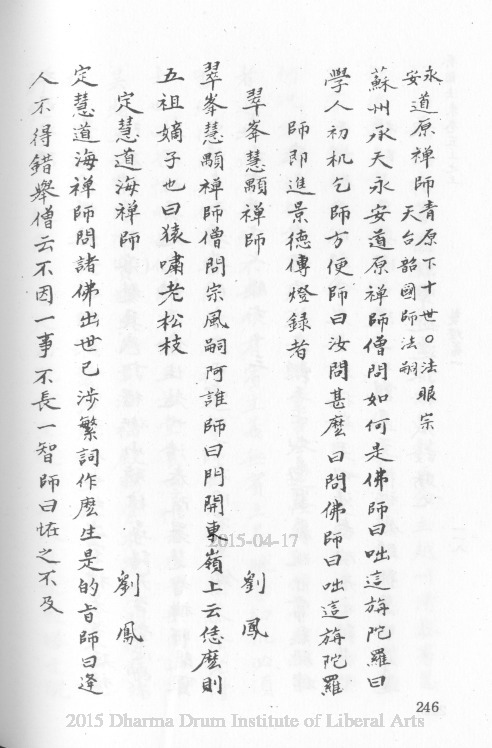 永
安道原禪師青原下十世○法眼宗
天台韶國師法嗣
蘇州承天永安道原禪師僧問如何是佛師曰咄這旃陀羅曰
學人初机乞師方便師曰汝問甚麼曰問佛師曰咄這旃陀羅
師即進景德傳燈録者
翠峯慧顒禪師 劉鳳
翠峯慧顒禪師僧問宗風嗣阿誰師曰門開東嶺上云恁麼則
五祖嫡子也曰猿嘯老松枝
定慧道海禪師 劉鳳
定慧道海禪師問諸佛出世已涉繁詞作麼生是的旨師曰逢
人不得錯舉僧云不因一事不長一智師曰恠之不及
246
2015-04-17
2015 Dharma Drum Institute of Liberal Arts